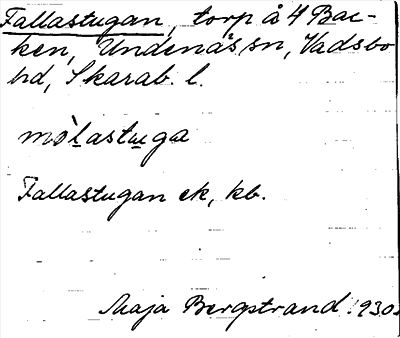 Fallastugan, torp å 4 Bac-
ken, Undenäs sn, Vadsbo
hd, Skarab. l.
mòlastuga
Fallastugan ek, kb.
Maja Bergstrand 1930.